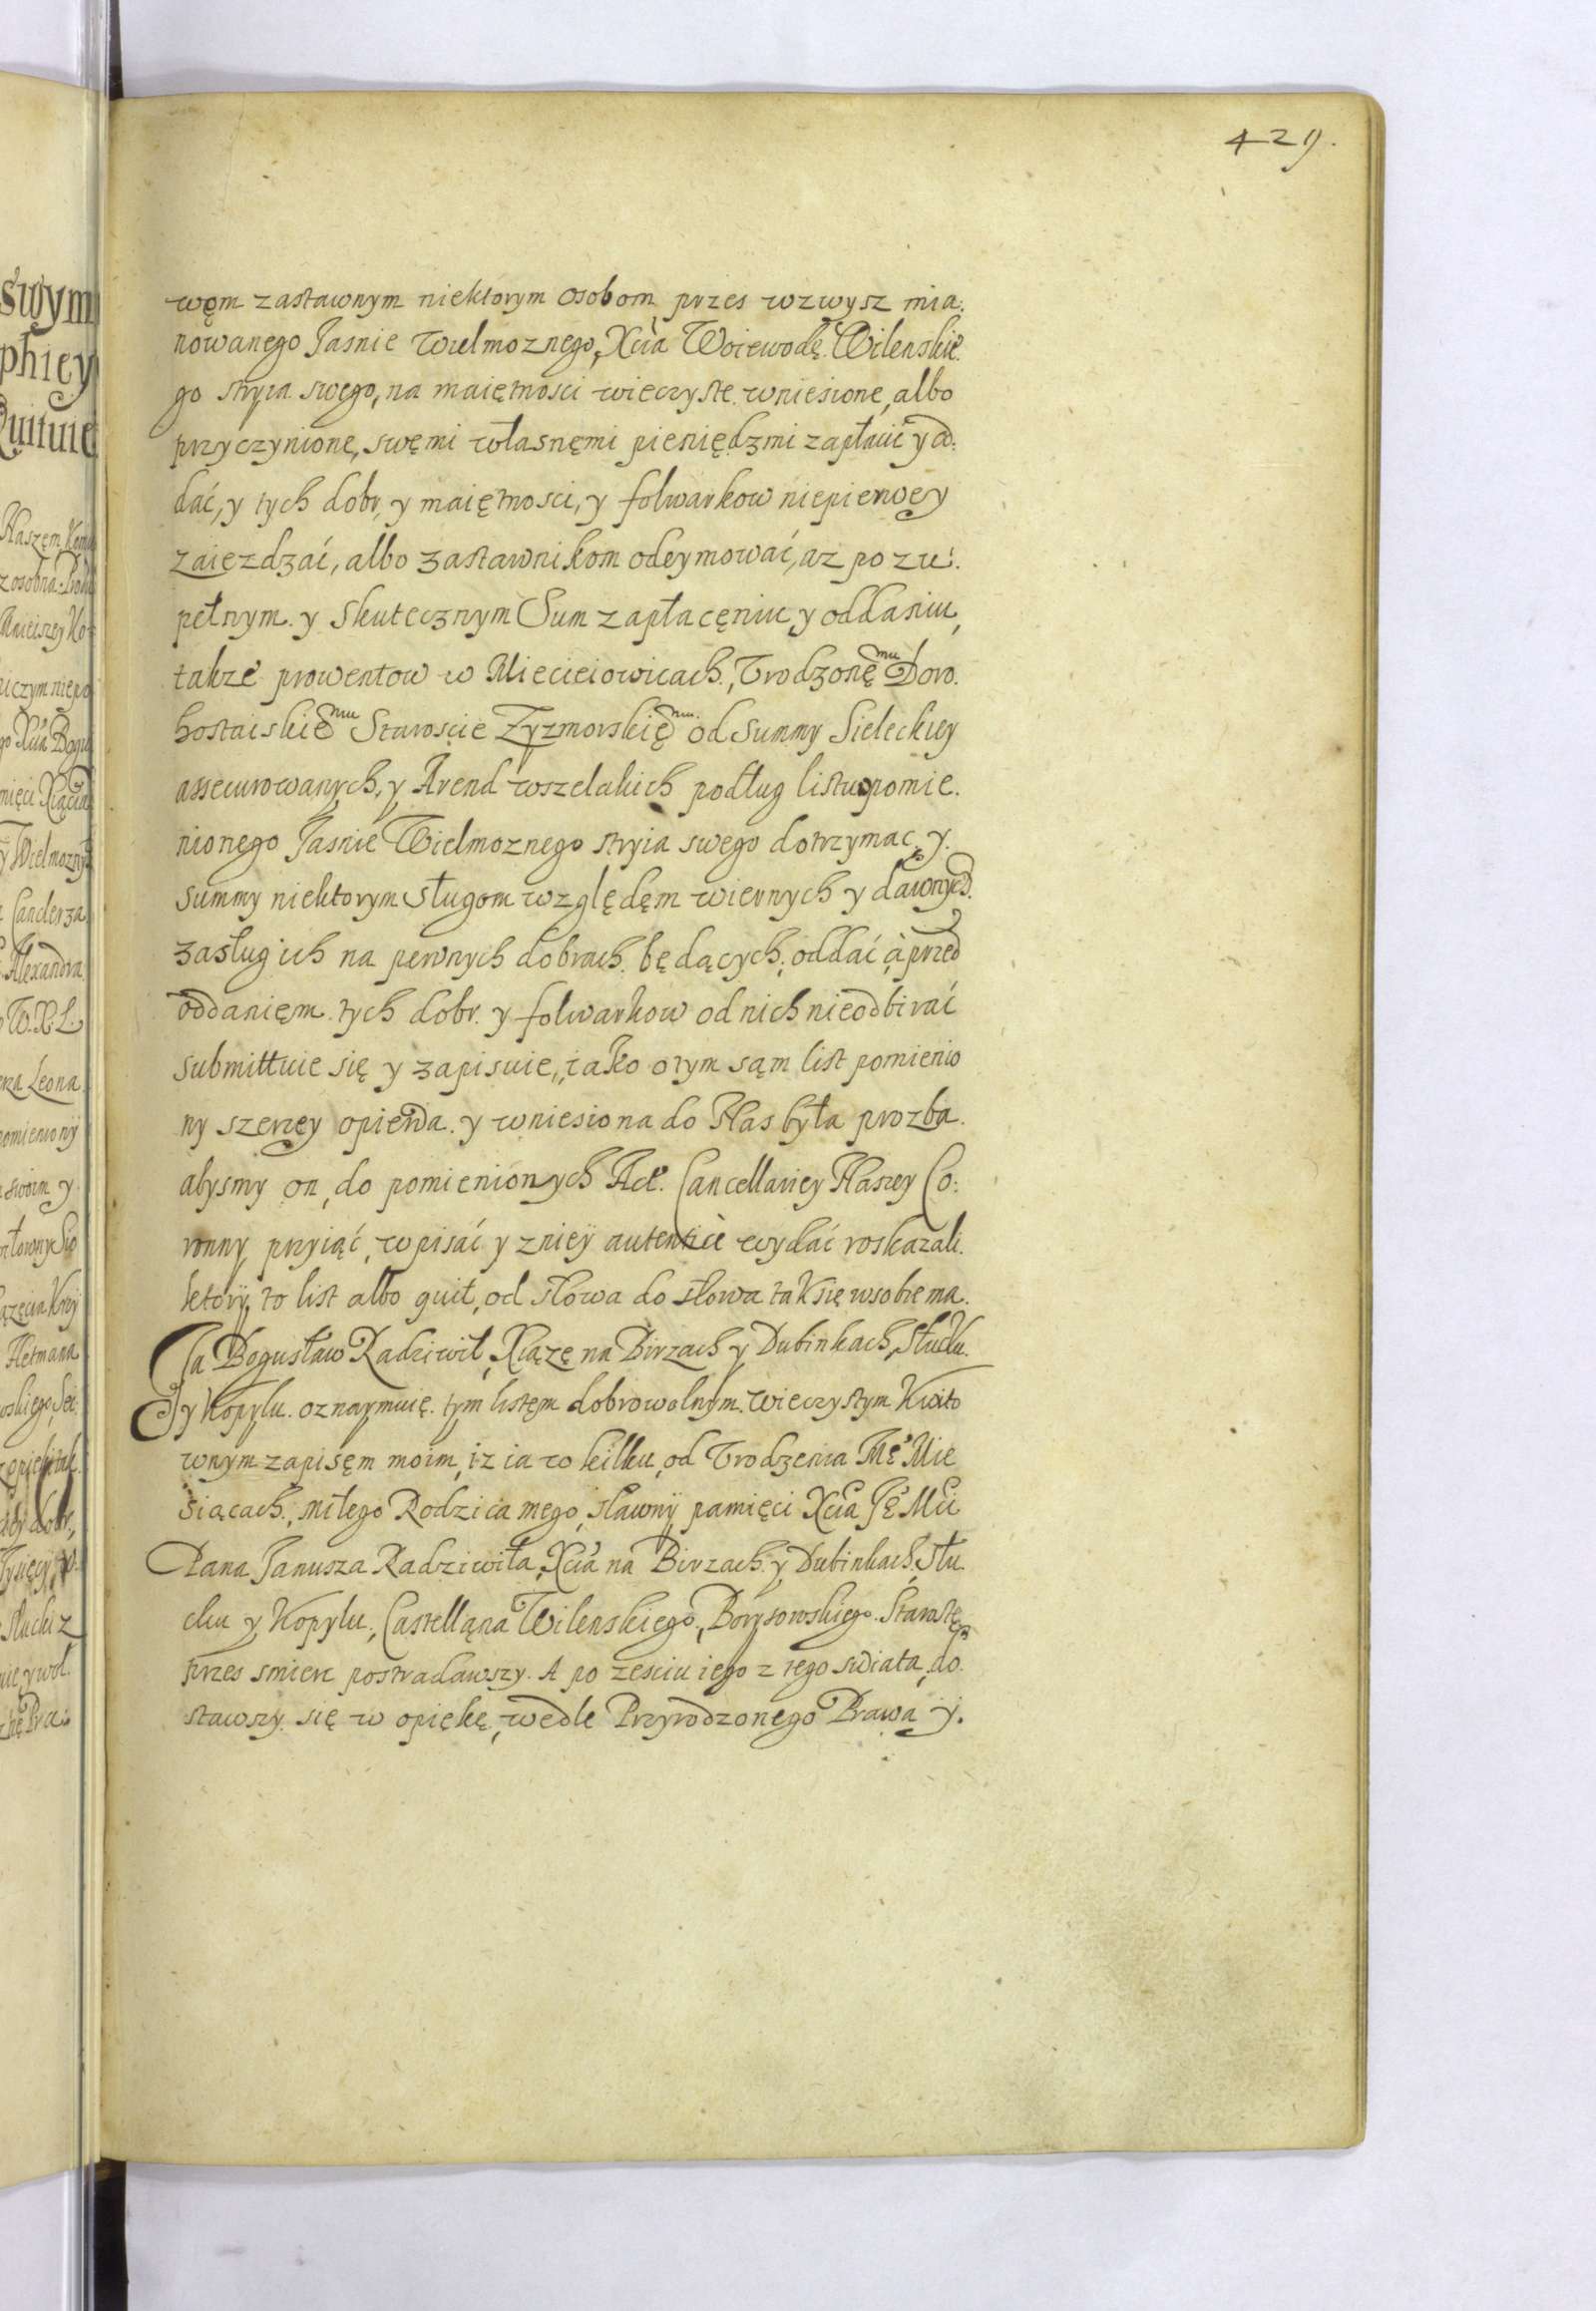 429.
węm zastawnym niektorym osobom przes wzwysz mia:
nowanego Jasnie Wielmoznego, Xcia Woiewodę Wilenskie
go stryia swego, na maiętnosci wieczyste wniesione, albo
przyczynione, swęmi własnęmi pieniędzmi zapłacić y od:
dać, y tych dobr, y maiętnosci, y folwarkow niepierwey
zaiezdzać, albo zastawnikom odeymować, az po zu:
pełnym y skutecznym Sum zapłacęniu y oddaniu,
takze prowentow w Mieciciowicach, Vrodzonęmu Doro.
hostaiskięmu Staroscie Zyzmorskięmu od Summy Sieleckiey
assecurowanych, y Arend wszelakich podług listu pomie.
nionego Jasnie Wielmoznego stryia swego dotrzymac, y
summy niektorym sługom względęm wiernych y dawnych
zasług ich na pewnych dobrach będących, oddać, à przed
oddanięm tych dobr y folwarkow od nich nieodbirać
submittuie się y zapisuie, iako o tym sąm list pomienio
ny szerzey opiewa. y wniesiona do Nas była prozba
abysmy on, do pomienionych Act Cancellariey Naszey Co:
ronny przyiąć, wpisać y zniey autenticè wydać roskazali.
ktory to list albo quit, od słowa do słowa tak się wsobie ma.
Ja Bogusław Radziwił, Xiązę na Birzach y Dubinkach, Słucku
y Kopylu. oznaymuię tym listęm dobrowolnym wieczystym Kwito
wnym zapisęm moim, iz ia w kilku, od Vrodzenia Mę Mie
siącach, miłego Rodzica mego, sławny pamięci Xcia Ję Mci
Pana Janusza Radziwiła, Xcia na Birzach y Dubinkach, Słu
cku y Kopylu, Castellana Wilenskiego, Borysowskiego Starostę
przes smierc postradawszy. A po zesciu iego z tego swiata, do
stawszy się w opiekę, wedle Przyrodzonego Prawa y.
swym
phiey
Quituie